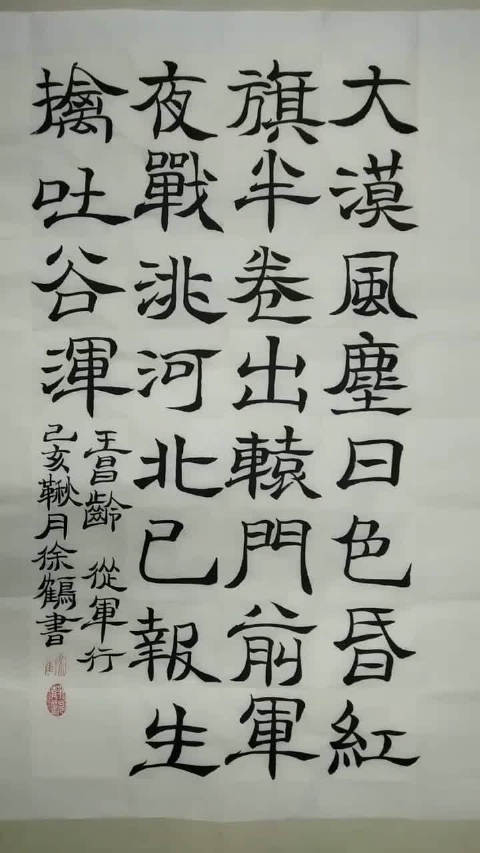 大漠風塵日色昏紅
旗半卷出轅門前軍
夜戰洮河北已報生
擒吐谷渾
王昌齡 從軍行
己亥鞦月徐鶴書